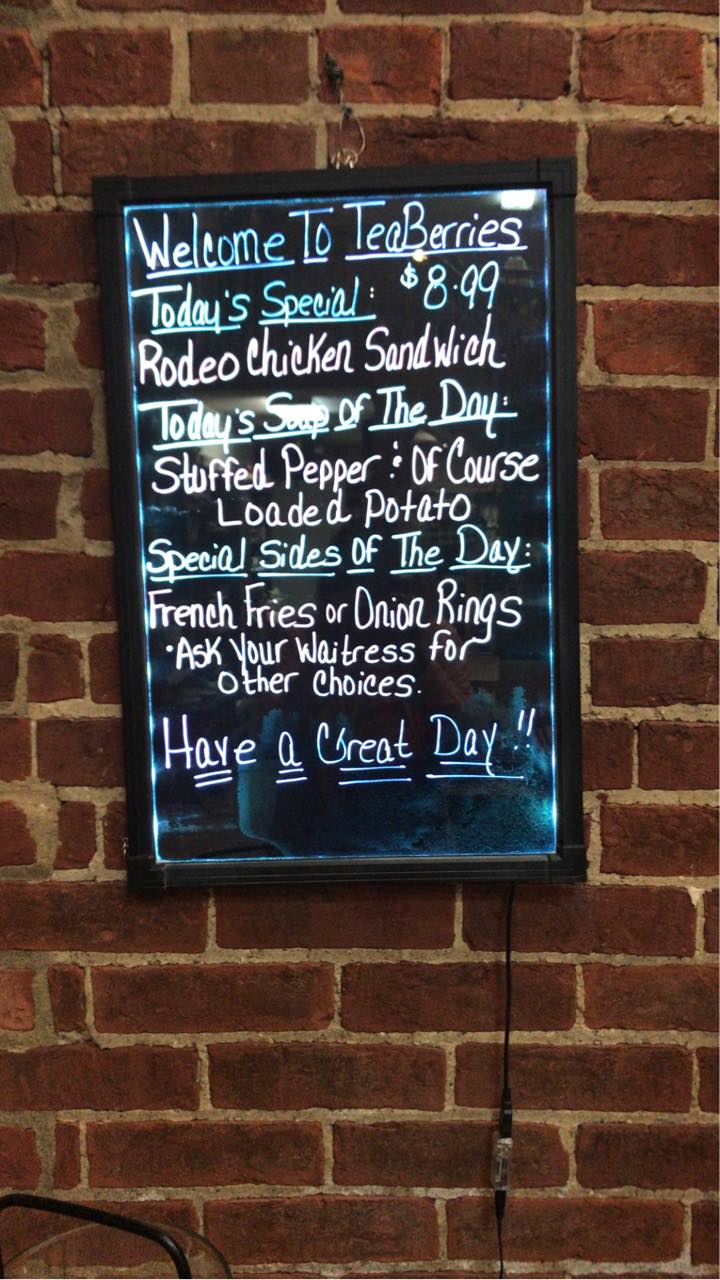 Welcome To TeaBerries
Today's Special: $8.99
Rodeo Chicken Sandwich
Today's Soup Of The Day:
Stuffed Pepper & Of Course
Loaded Potato
Special Sides Of The Day:
French Fries or Onion Rings
•Ask Your Waitress for
Other Choices.
Have a Great Day!!